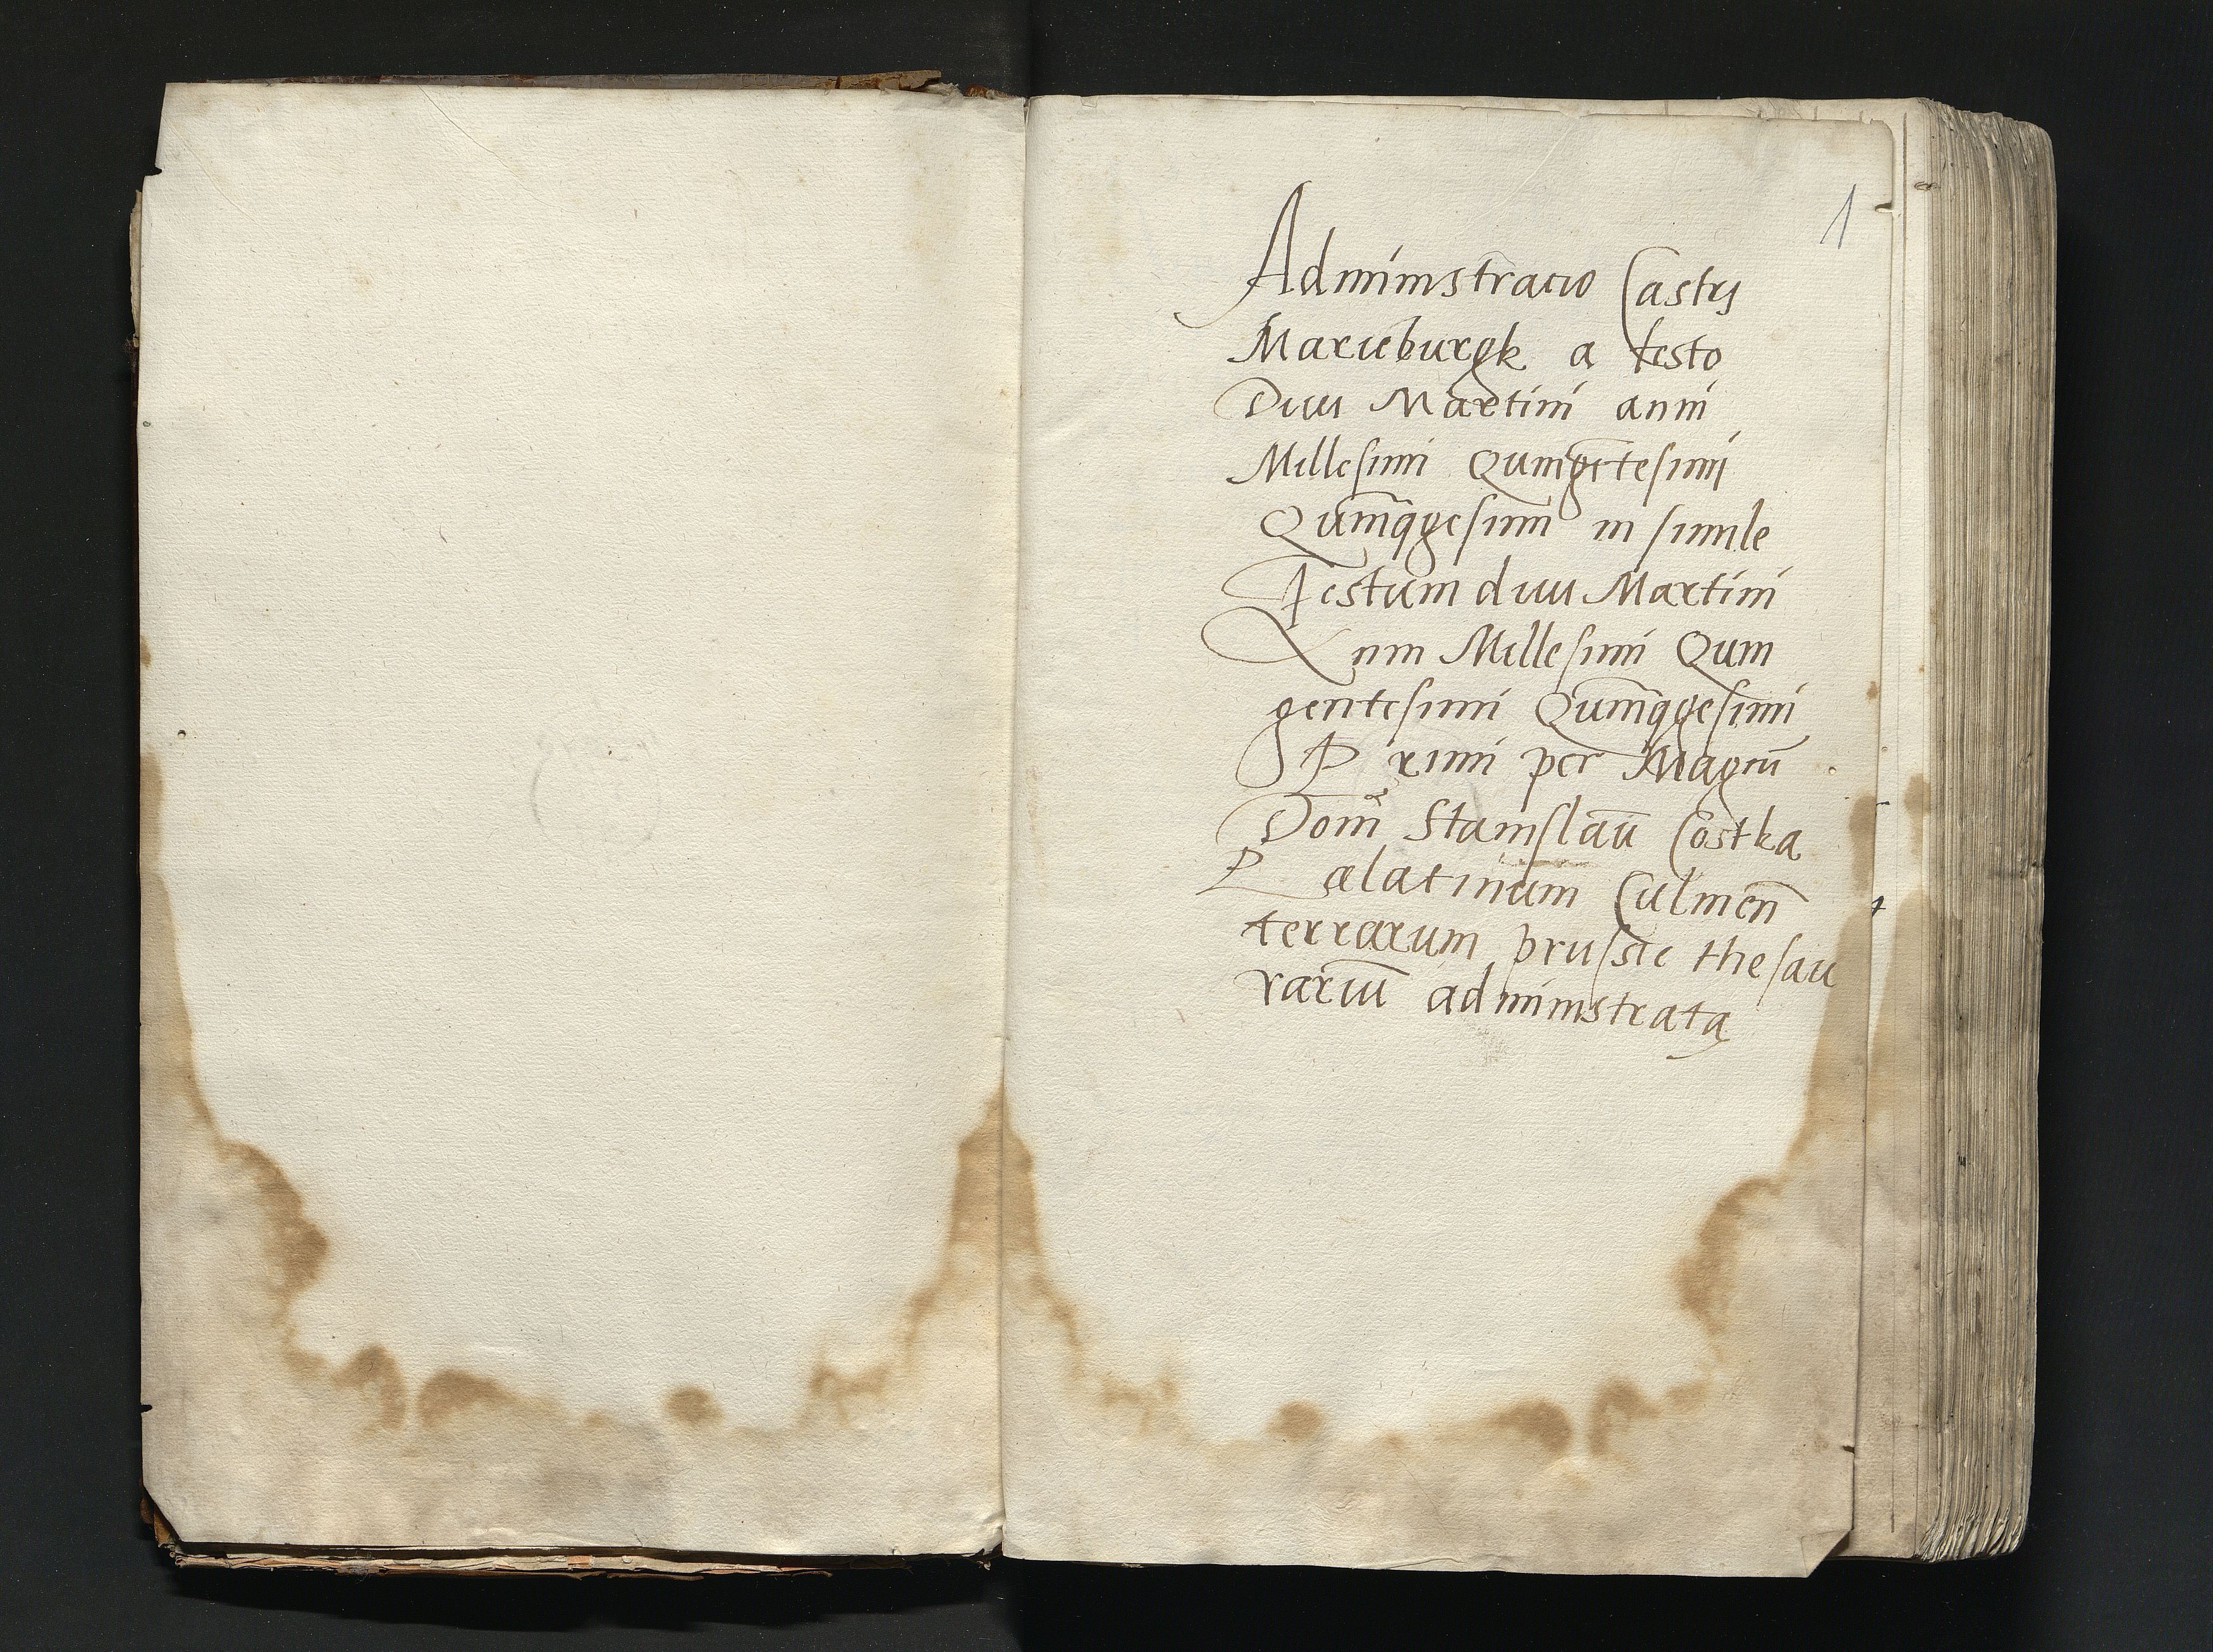 1
Administratio Castri
Marieburgk a festo
Diui Martini anni
Millesimi Quingētesimi
Quīnqgesimi in simile
Festum diui Martini
Anni Millesimi Quin
gentesimi Quīnqgesimi
Primi per Magcū
Dom̄ Stanislaū Costka
Palatinum Culmeñ
terrarum prussie thesau
rariū administrata